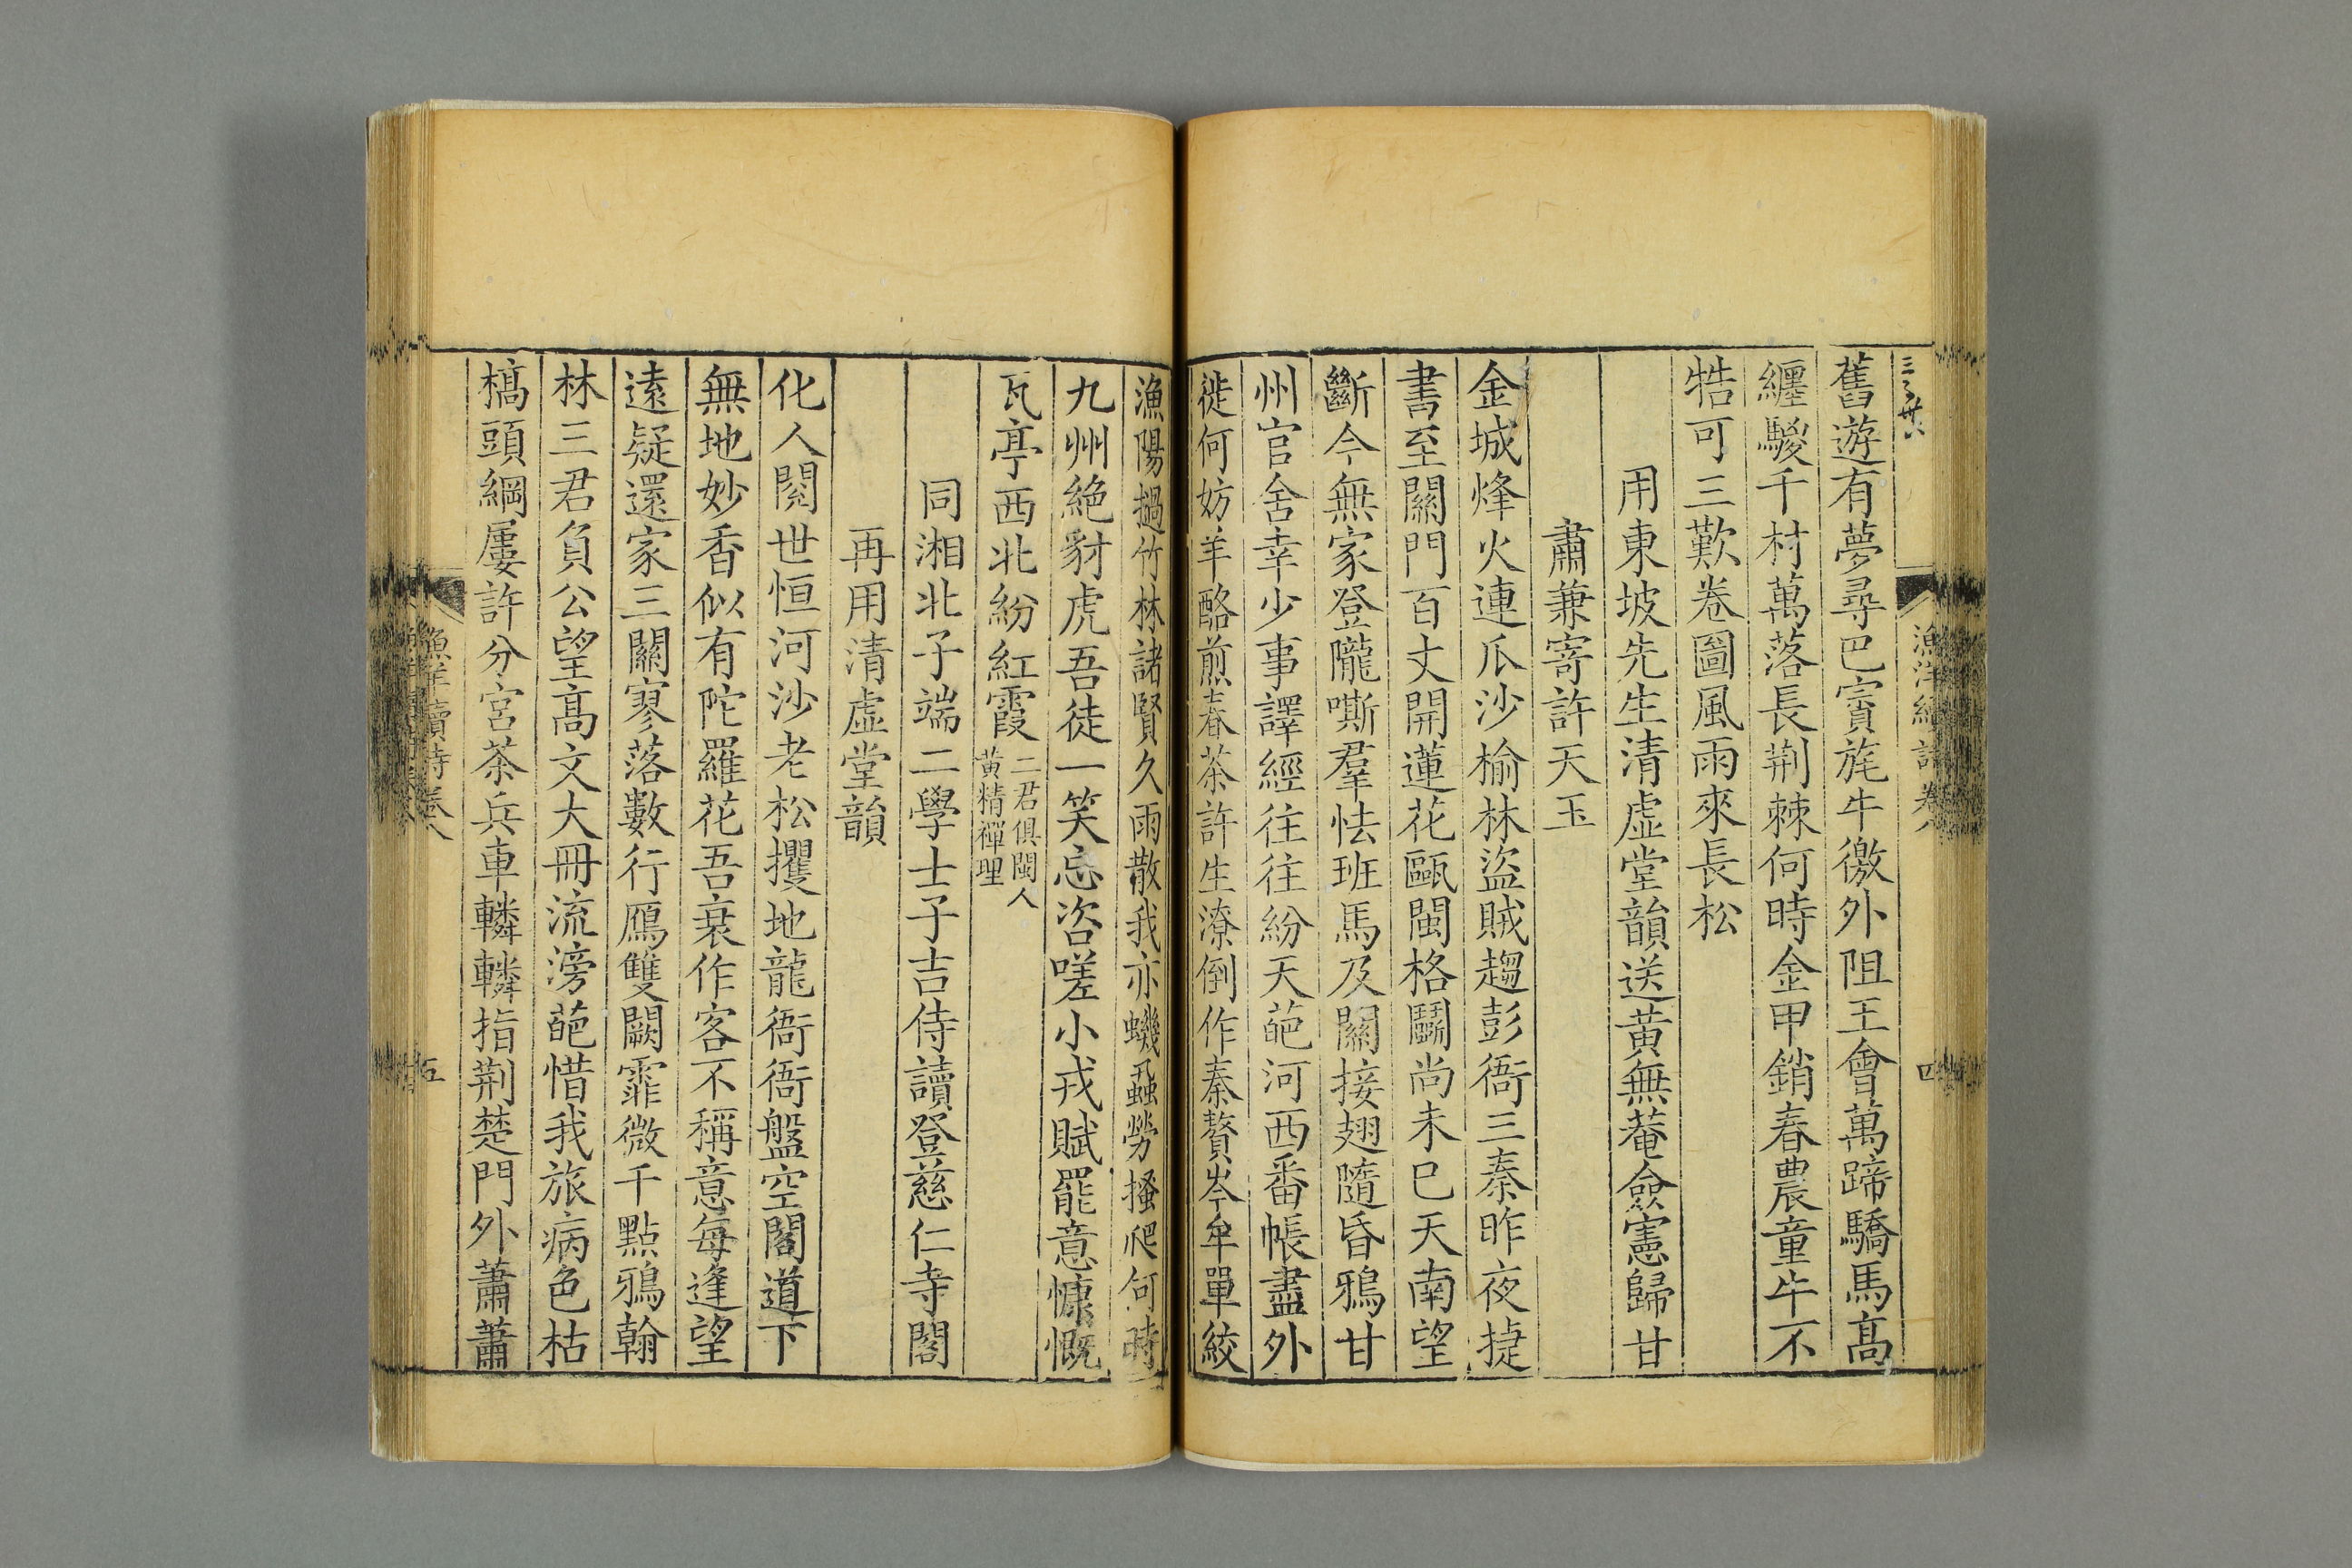 舊遊有夢尋巴賨旄牛徼外阻王會萬蹄驕馬高
纏騣千村萬落長荆棘何時金甲銷春農童牛不
牿可三歎卷圖風雨來長松
用東坡先生清虛堂韻送黄無菴僉憲歸甘
肅兼寄許天玉
金城烽火連瓜沙榆林盜賊趨彭衙三秦昨夜捷
書至關門百丈開蓮花甌閩格鬭尚未巳天南望
斷今無家登隴嘶羣怯班馬及關接翅隨昏鴉甘
州官舍幸少事譯經往往紛天葩河西番帳盡外
徙何妨羊酪煎春茶許生潦倒作秦贅岑牟單絞
漁陽撾竹林諸賢久雨散我亦蟣蝨勞搔爬何時
九州絶豺虎吾徒一笑忘咨嗟小戎賦罷意慷慨
瓦亭西北紛紅霞二君俱閩人
黄精禪理
同湘北子端二學士子吉侍讀登慈仁寺閣
再用清虛堂韻
化人閱世恒河沙老松攫地龍衙衙盤空閣道下
無地妙香似有陀羅花吾衰作客不稱意每逢望
遠疑還家三關寥落數行鴈雙闕霏微千點鴉翰
林三君負公望高文大冊流滂葩惜我旅病色枯
槁頭綱屢許分宫茶兵車轔轔指荆楚門外蕭蕭
五